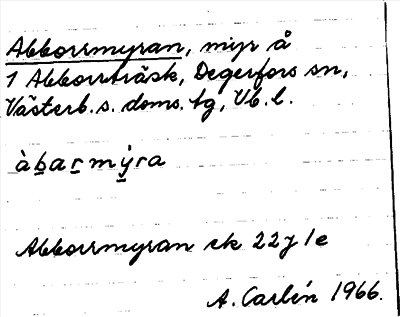 Abborrmyran, myr å
1 Abborrträsk, Degerfors sn,
Västerb. s. doms. tg, Vb. l.
àḇaṟmỳ̱ra
Abborrmyran ek 22J1e
A. Carlén 1966.